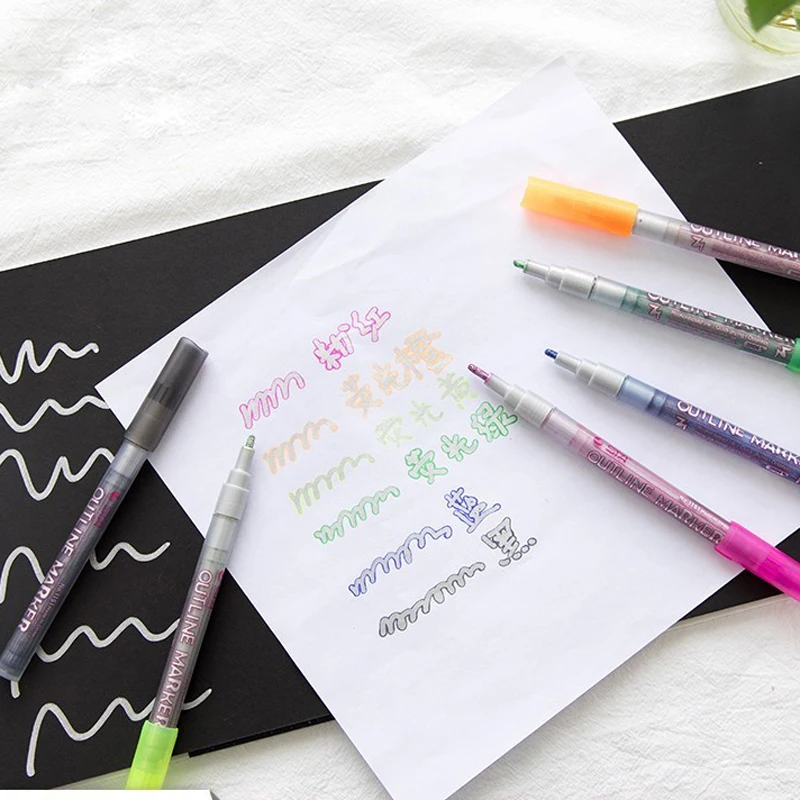 粉红
荧光橙
荧光黄
荧光绿
蓝
黑
OUTLINE MAR
OUTLINE MARKER
OUTLINE MARK
OUTLINE MARKER
OUTLINE MARKER
OUTLINE MARKER